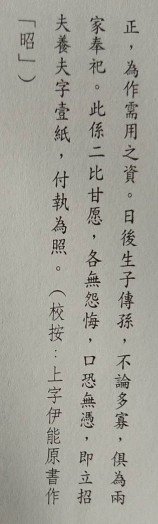 正，為作需用之資。日後生子傳孫，不論多寡，俱為兩
家奉祀。此係二比甘愿，各無怨悔，口恐無憑，即立招
夫養夫字壹紙，付執為照。（校按：上字伊能原書作
「昭」）